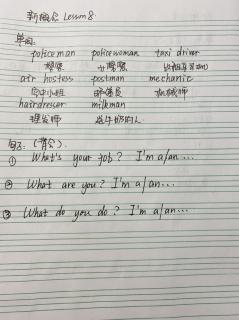 新概念 Lesson 8
单词:
policeman policewoman taxi driver
警察 女警察 出租车司机
air hostess postman mechanic
空中小姐 邮递员 机械师
hairdresser milkman
理发师 送牛奶的人
句子:(背会)
① What's your job? I'm a/an...
② What are you? I'm a/an...
③ What do you do? I'm a/an...